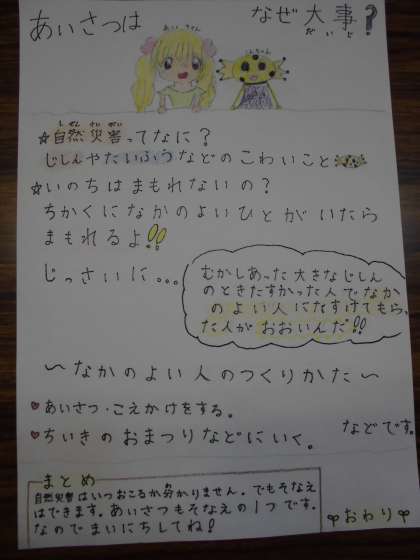 あいさつは なぜ大事?
だいじ
あい ちゃん
☆自然災害ってなに?
しぜんさいがい
じしんやたいふうなどのこわいこと
☆いのちはまもれないの?
ちかくになかのよいひとがいたら
まもれるよ!!
じっさいに...
むかしあった大きなじしん
のときたすかった人でなか
のよい人にたすけてもら
た人がおおいんだ!!
〜なかのよい人のつくりかた〜
♥あいさつ・こえかけをする。
♥ちいきのおまつりなどにいく。
などです。
まとめ
自然災害はいつおこるか分かりません。でもそなえ
はできます。あいさつもそなえの1つです。
なのでまいにちしてね!
おわり